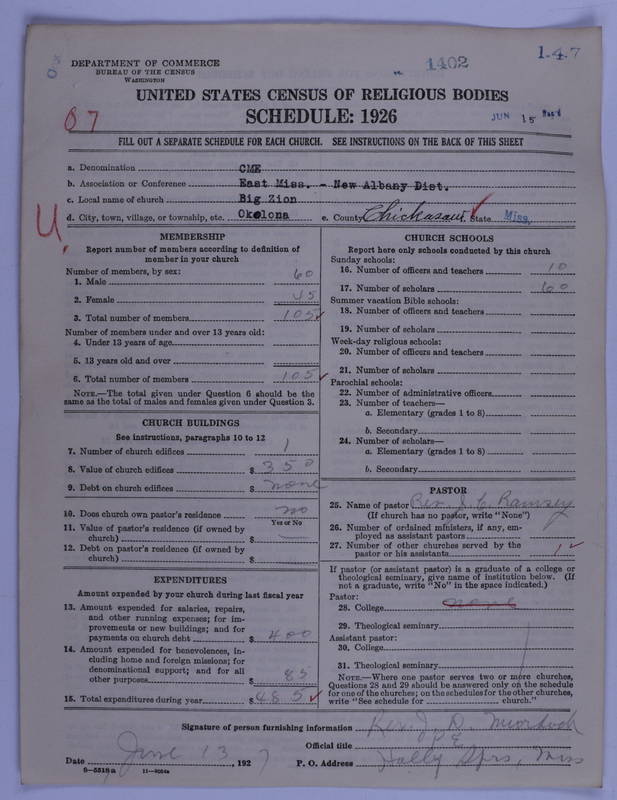 1402
1-4-7
DEPARTMENT OF COMMERCE
BUREAU OF THE CENSUS
WASHINGTON
UNITED STATES CENSUS OF RELIGIOUS BODIES
SCHEDULE: 1926
JUN 15 Rec'd
07
FILL OUT A SEPARATE SCHEDULE FOR EACH CHURCH. SEE INSTRUCTIONS ON THE BACK OF THIS SHEET
a. Denomination CME
b. Association or Conference East Miss. - New Albany Dist.
c. Local name of church Big Zion
d. City, town, village, or township, etc. Okolona e. County Chickasaw State Miss.
U.
MEMBERSHIP
Report number of members according to definition of
member in your church
Number of members, by sex:
1. Male 60
2. Female 45
3. Total number of members 105
Number of members under and over 13 years old:
4. Under 13 years of age
5. 13 years old and over
6. Total number of members 105
NOTE.—The total given under Question 6 should be the
same as the total of males and females given under Question 3.
CHURCH BUILDINGS
See instructions, paragraphs 10 to 12
7. Number of church edifices 1
8. Value of church edifices $ 350
9. Debt on church edifices $ none
10. Does church own pastor's residence? no
Yes or No
11. Value of pastor's residence (if owned by
church) $ —
12. Debt on pastor's residence (if owned by
church) $
EXPENDITURES
Amount expended by your church during last fiscal year
13. Amount expended for salaries, repairs,
and other running expenses; for im-
provements or new buildings; and for
payments on church debt $ 400
14. Amount expended for benevolences, in-
cluding home and foreign missions; for
denominational support; and for all
other purposes 85
15. Total expenditures during year $ 485
CHURCH SCHOOLS
Report here only schools conducted by this church
Sunday schools:
16. Number of officers and teachers 10
17. Number of scholars 60
Summer vacation Bible schools:
18. Number of officers and teachers
19. Number of scholars
Week-day religious schools:
20. Number of officers and teachers
21. Number of scholars
Parochial schools:
22. Number of administrative officers
23. Number of teachers—
a. Elementary (grades 1 to 8)
b. Secondary
24. Number of scholars—
a. Elementary (grades 1 to 8)
b. Secondary
PASTOR
25. Name of pastor Rev. J. C. Ramsey
(If church has no pastor, write "None")
26. Number of ordained ministers, if any, em-
ployed as assistant pastors
27. Number of other churches served by the
pastor or his assistants 1
If pastor (or assistant pastor) is a graduate of a college or
theological seminary, give name of institution below. (If
not a graduate, write "No" in the space indicated.)
Pastor:
28. College none
29. Theological seminary
Assistant pastor:
30. College
31. Theological seminary
NOTE.—Where one pastor serves two or more churches,
Questions 28 and 29 should be answered only on the schedule
for one of the churches; on the schedules for the other churches,
write "See schedule for church."
Signature of person furnishing information Rev. J. D. Murdock
Official title P E
Date June 13, 1927 P. O. Address Holly Sprs, Miss
8-5518a 11-9054a